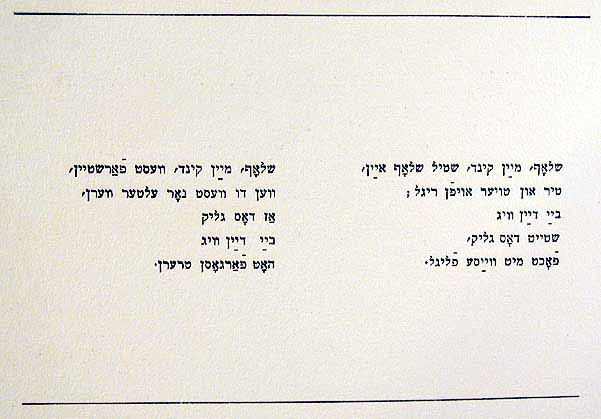 שלאָף, מײַן קינד, שטיל שלאָף אײַן,
טיר און טויער אויפֿן ריגל;
בײַ דײַן וויג
שטייט דאָס גליק,
פֿאָכט מיט ווײַסע פֿליגל.
שלאָף, מײַן קינד, וועסט פֿאַרשטיין,
ווען דו וועסט נאָר עלטער ווערן,
אַז דאָס גליק
בײַ דײַן וויג
האָט פֿאַרגאָסן טרערן.